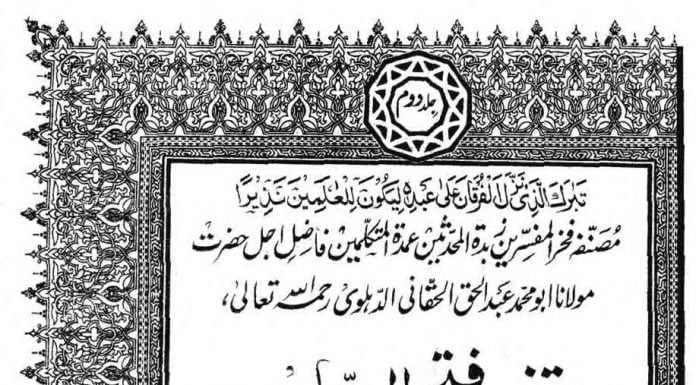 جلد دوم
تَبٰرَكَ الَّذِیْ نَزَّلَ الْفُرْقَانَ عَلٰی عَبْدِهٖ لِیَكُوْنَ لِلْعٰلَمِیْنَ نَذِیْرًا
مصنفہ فخر المفسرین زبدۃ المحدثین عمدۃ المتکلمین فاضل اجل حضرت
مولانا ابو محمد عبد الحق الحقانی الدہلوی رحمہ اللہ تعالیٰ،